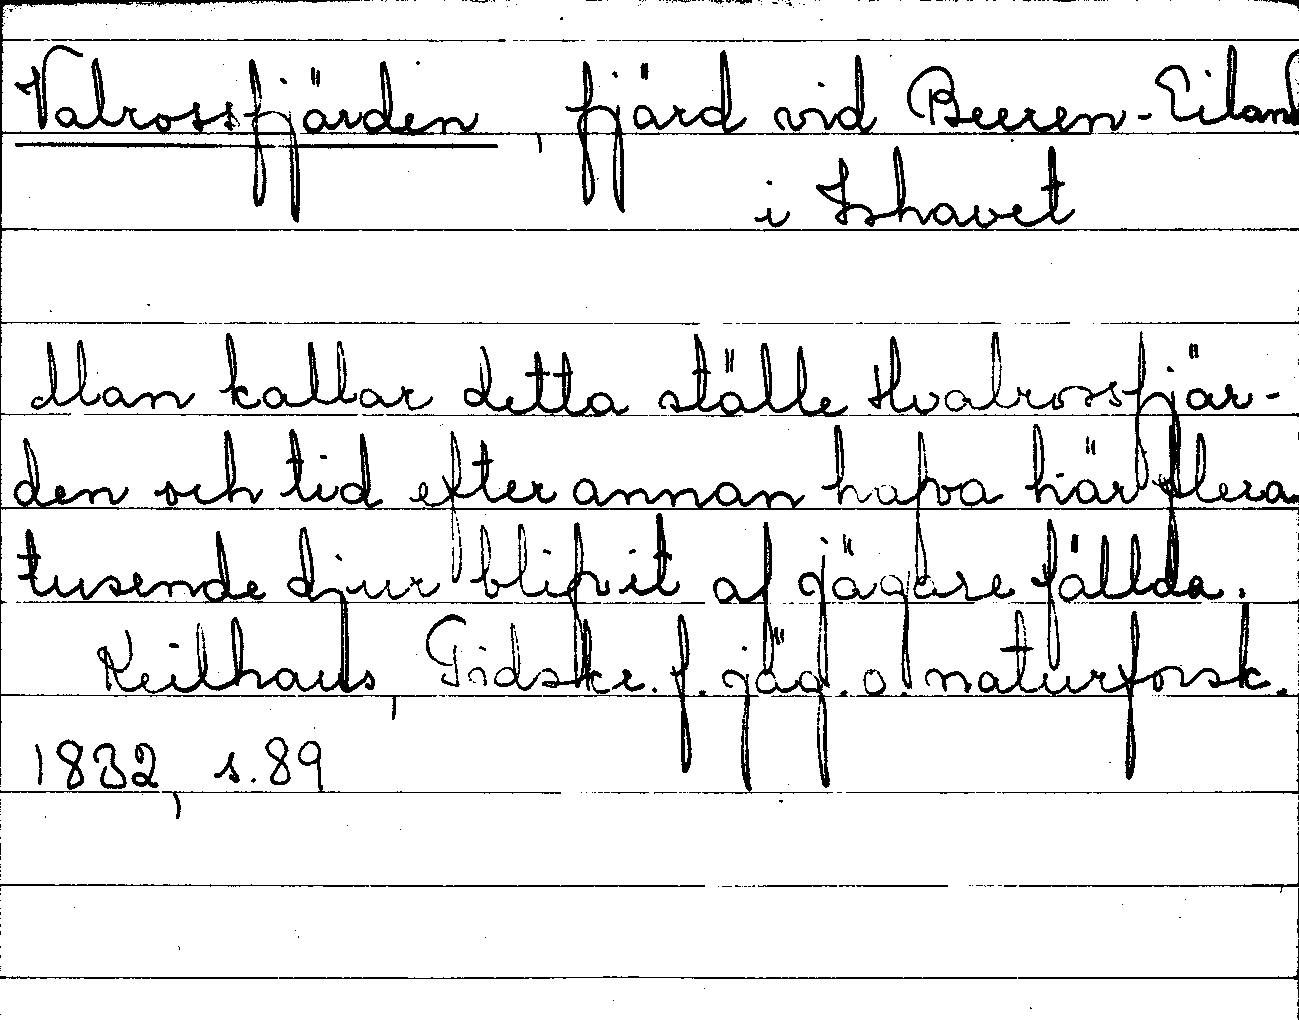 Valrossfjärden, fjärd vid Beeren-Eiland
i Ishavet
Man kallar detta ställe Hvalrossfjär-
den och tid efter annan hafva här flera
tusende djur blifvit af jägare fällda.
Keilhaus, Tidskr. f. jäg. o. naturforsk.
1832, s. 89